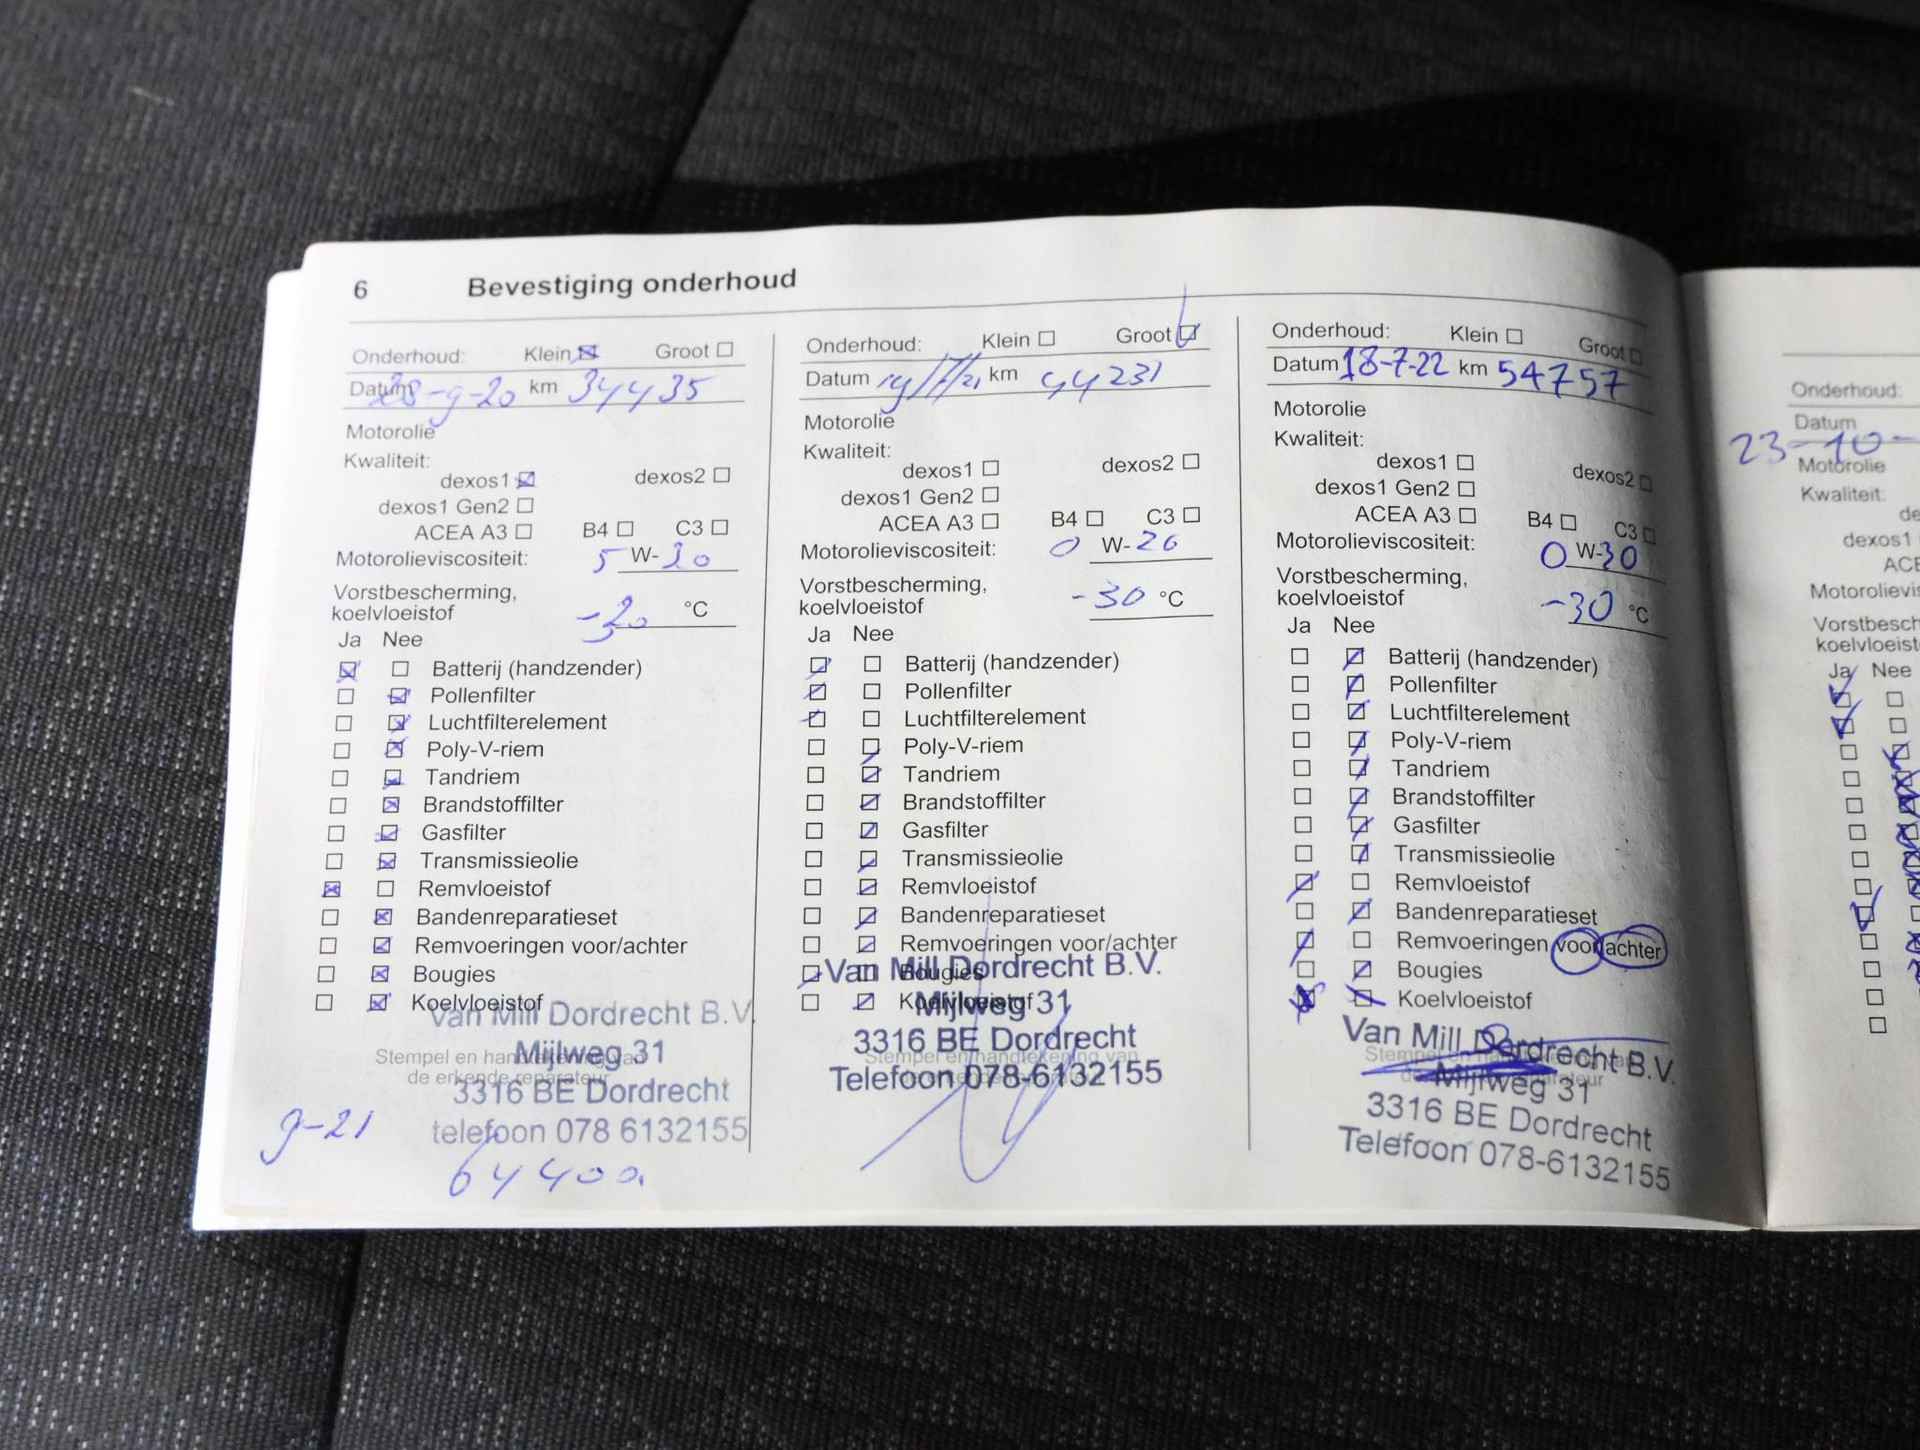 6 Bevestiging onderhoud
Onderhoud: Klein Groot
Datum 28-9-20 km 34435
Motorolie
Kwaliteit:
dexos1 dexos2
dexos1 Gen2
ACEA A3 B4 C3
Motorolieviscositeit: 5 W-30
Vorstbescherming,
koelvloeistof -30 °C
Ja Nee
Batterij (handzender)
Pollenfilter
Luchtfilterelement
Poly-V-riem
Tandriem
Brandstoffilter
Gasfilter
Transmissieolie
Remvloeistof
Bandenreparatieset
Remvoeringen voor/achter
Bougies
Koelvloeistof
Van Mill Dordrecht B.V.
Stempel en handtekening van
Mijlweg 31
de erkende reparateur
3316 BE Dordrecht
telefoon 078 6132155
9-21
64400
Onderhoud: Klein Groot
Datum km 44231
Motorolie
Kwaliteit:
dexos1 dexos2
dexos1 Gen2
ACEA A3 B4 C3
Motorolieviscositeit: 0 W-20
Vorstbescherming,
koelvloeistof -30 °C
Ja Nee
Batterij (handzender)
Pollenfilter
Luchtfilterelement
Poly-V-riem
Tandriem
Brandstoffilter
Gasfilter
Transmissieolie
Remvloeistof
Bandenreparatieset
Remvoeringen voor/achter
Bougies
Van Mill Dordrecht B.V.
Koelvloeistof
Mijlweg 31
3316 BE Dordrecht
Stempel en handtekening van
Telefoon 078-6132155
Onderhoud: Klein Groot
Datum 18-7-22 km 54757
Motorolie
Kwaliteit:
dexos1 dexos2
dexos1 Gen2
ACEA A3 B4 C3
Motorolieviscositeit: 0 W-30
Vorstbescherming,
koelvloeistof -30 °C
Ja Nee
Batterij (handzender)
Pollenfilter
Luchtfilterelement
Poly-V-riem
Tandriem
Brandstoffilter
Gasfilter
Transmissieolie
Remvloeistof
Bandenreparatieset
Remvoeringen voor/achter
Bougies
Koelvloeistof
Van Mill Dordrecht B.V.
Mijlweg 31
3316 BE Dordrecht
Telefoon 078-6132155
Onderhoud:
Datum
23-10-
Motorolie
Kwaliteit:
de
dexos1
ACE
Motorolievis
Vorstbesch
koelvloeist
Ja Nee